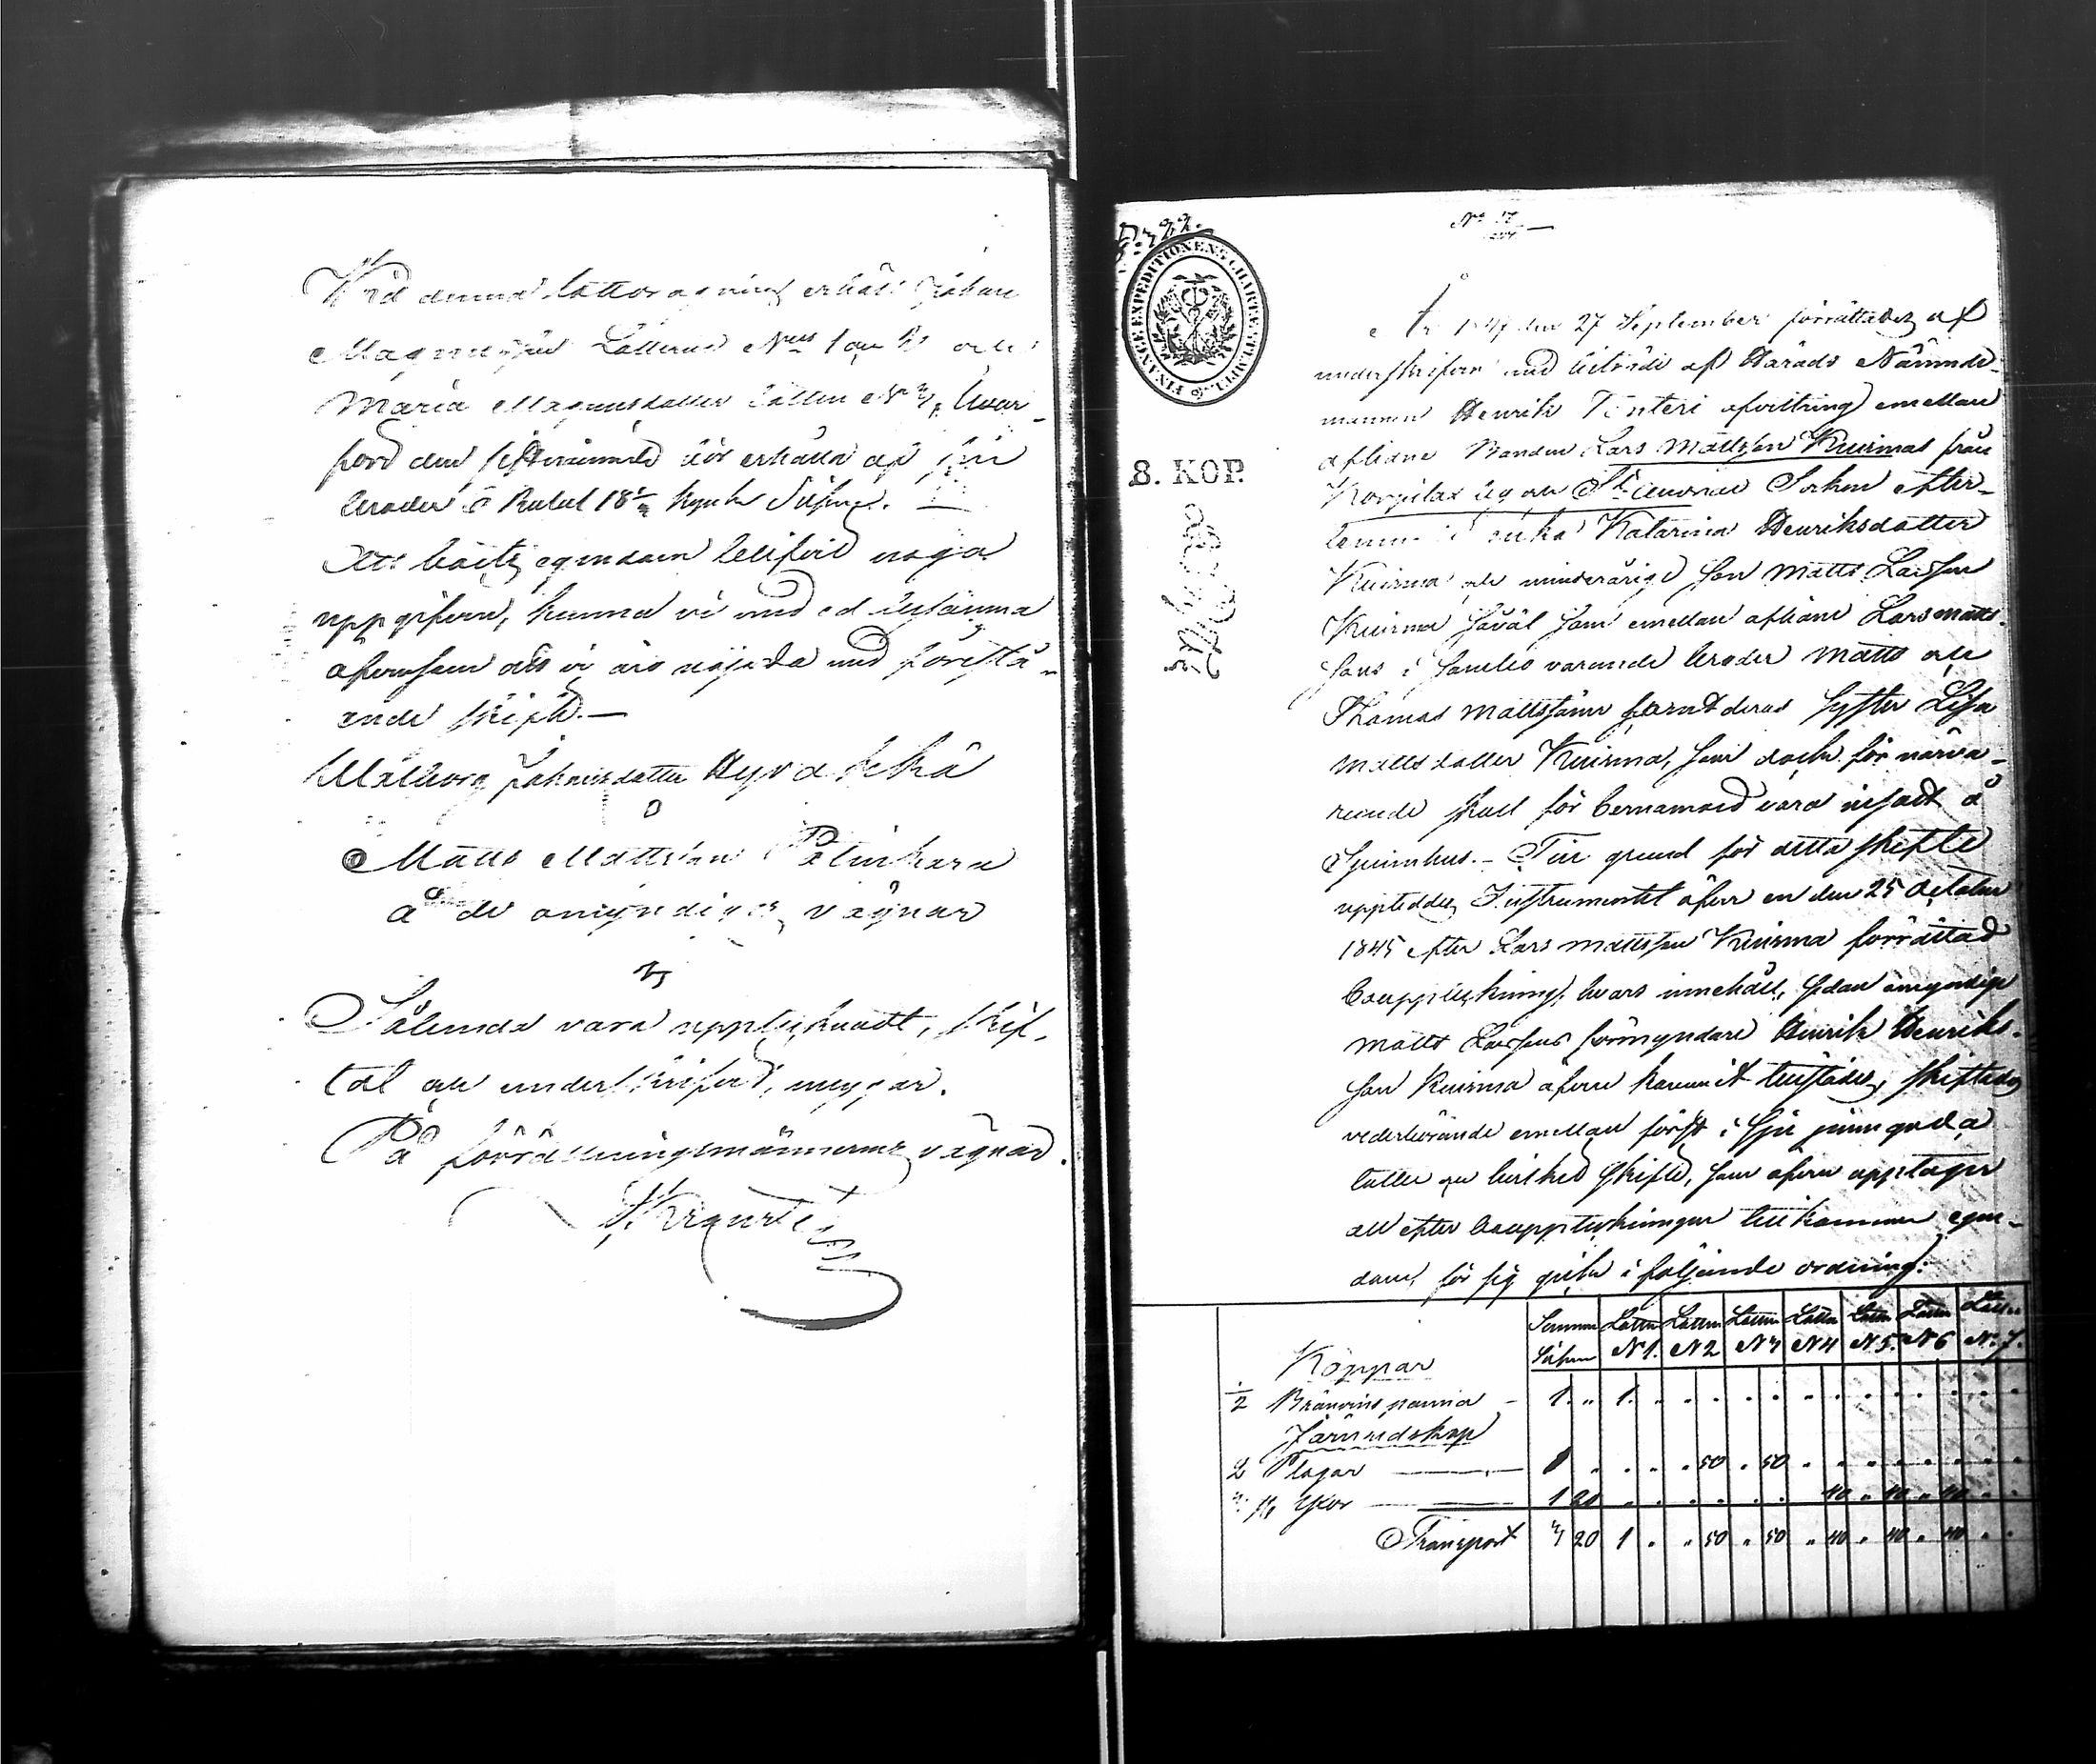 Vid denna lottdragning erhöll Johan
Magnusson Lotterne N:ris 1 och 2 och
Maria Magnusdotter Lotten N 3, hvar-
före den sistnämnde bör erhålla af sin
broder 5 Rubel 18 4/7 kopek Silfver.
Att boets egendom blifvit noga
uppgifven, kunna vi med ed bestämma
äfvensom att vi äro nöjda med förestå-
ende skifte.—
Walborg Johansdotter Hyvä
Matts Mattsson Patinkara
å de omyndigas vägnar
Sålunda vara upptecknadt, skif-
tat och underskrifvet, intygar.
På förrättningsmännernes vägnar.
N:o 17
FINANCE EXPEDITIONENS CHARTÆ STÄMPEL
8. KOP.
År 1847 den 27 September förrättades af
underskrifven med biträde af Härads Nämnde-
mannen Henrik Tönteri afvittring emellan
aflidne Bonden Lars Mattsson Kuismas från
Korpilax by och St Andreae Socken efter-
lemnade enka Katarina Henriksdotter
Kuisma och minderårige son Matts Larsson
Kuisma såväl som emellan aflidne Lars Matts-
sons i sambo varande broder Matts och
Thomas Mattssöner samt deras syster Lisa
Mattsdotter Kuisma, som dock för närva-
rande skall för barnamord vara insatt å
Spinnhus.- Till grund för detta skifte
uppteddes Instrumentet öfver en den 25 October
1845 efter Lars Mattsson Kuisma förrättad
Bouppteckning, hvars innehåll, sedan omyndige
Matts Larssons förmyndare Henrik Henriks-
son Kuisma äfven kommit tillstädes, skiftades
vederbörande emellan först i sju jemngoda
lotter och hvilket skifte, som äfven upptager
all efter bouppteckningen tillkommen egen-
dom, för sig gick i följande ordning:
Summa Lotten Lotten Lotten Lotten Lotten Lotten Lotten
Silfver N 1. N 2 N 3 N 4 N 5. N 6 N:o 7.
Koppar
1/2 Bränvins panna - 1. " 1. " " " " " " " " " " " " "
Järnredskap
2 Plogar 1 " " " " 50 " 50 " " " " " " " "
3 Yxor 1 20 " " " " " " " 40 " 40 " 40 " "
Transport 3 20 1 " " 50 " 50 " 40 " 40 " 40 " "